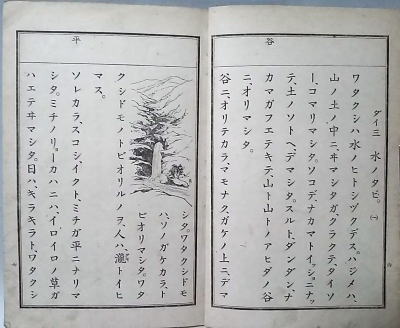 谷
ダイ三 水ノタビ。(一)
ワタクシハ水ノヒトシヅクデス。ハジメハ、
山ノ土ノ中ニ、ヰマシタガ、クラクテ、タイソ
ー、コマリマシタ。ソコデ、ナカマトイッショニナッ
テ、土ノソトヘ、デマシタ。スルト、ダンダン、ナ
カマガフエテキテ、山ト山トノアヒダノ谷
ニ、オリマシタ。
谷ニ、オリテカラ、マモナク、ガケノ上ニ、デマ
平
シタ。ワタクシドモ
ハ、ソノガケカラ、ト
ビオリマシタ。ワタ
クシドモノトビオリルノヲ、人ハ、瀧トイヒ
マス。
ソレカラ、スコシ、イクト、ミチガ平ニナリマ
シタ。ミチノリョーガハニハ、イロイロノ草ガ
ハエテヰマシタ。日ハ、キラキラト、ワタクシ